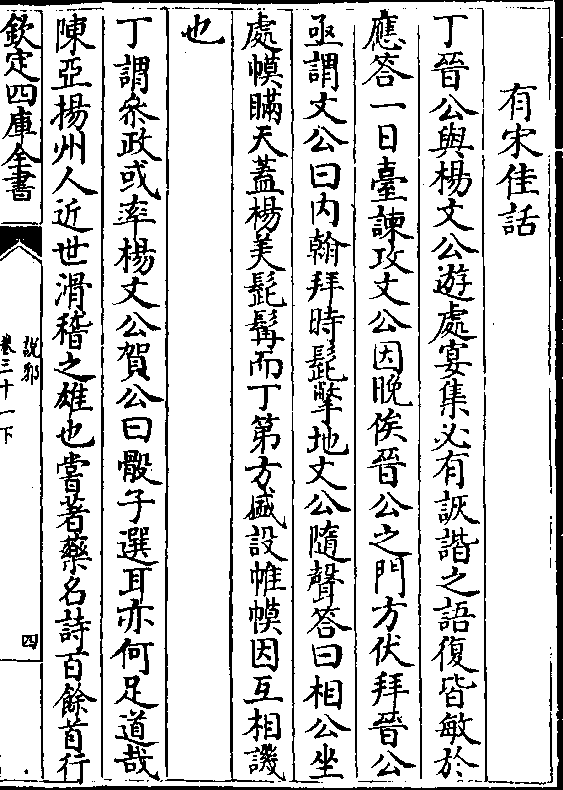 有宋佳話
丁晉公與楊文公遊處宴集必有詼諧之語復皆敏於
應答一日臺諫攻文公因晚俟晉公之門方伏拜晉公
亟謂文公曰内翰拜時髭撆地文公隨聲答曰相公坐
處幙瞞天蓋楊美髭髯而丁第方盛設帷幙因互相譏
也
丁謂叅政或率楊文公賀公曰骰子選耳亦何足道哉
陳亞揚州人近世滑稽之雄也嘗著藥名詩百餘首行
欽定四庫全書
說郛
卷三十一下
四